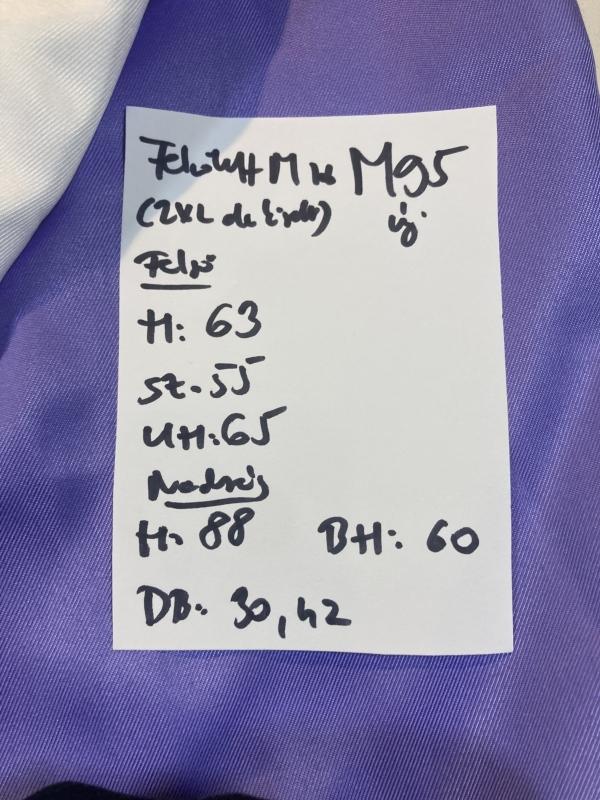 Felnőtt M-es M95
(2XL de kicsi) új
Felső
H: 63
SZ. 55
UH: 65
Nadrág
H. 88 BH: 60
DB. 30,42